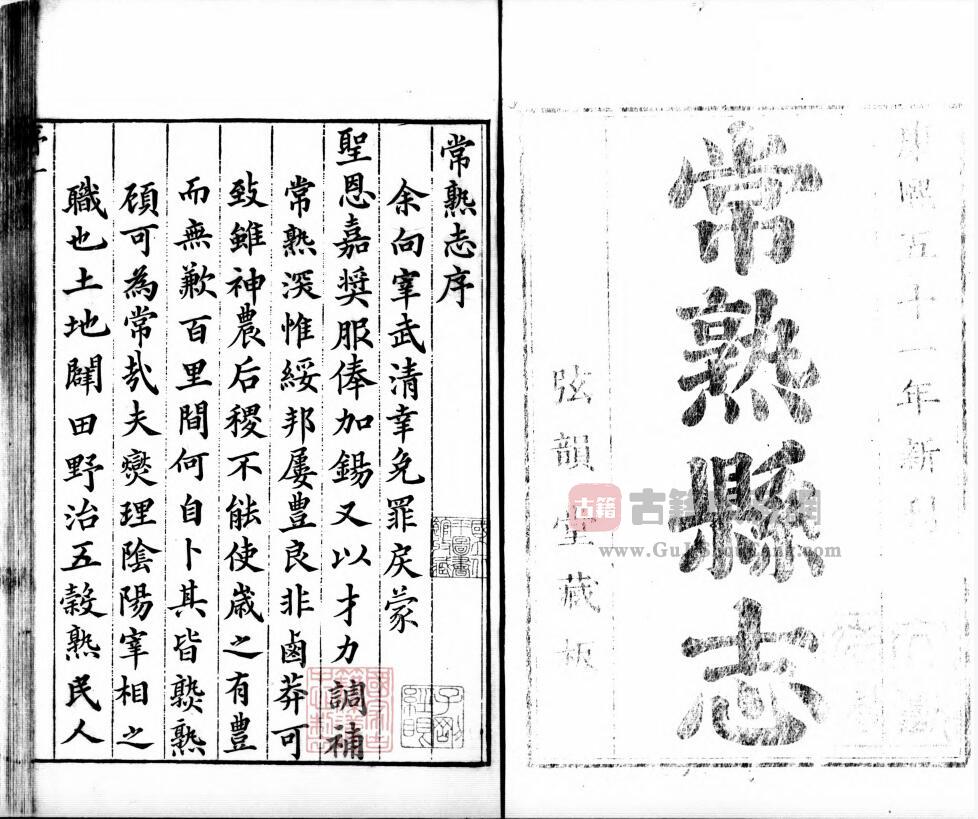 康熙五十一年新
常熟縣志
弦韻堂藏板
常熟志序
余向宰武清幸免罪戾蒙
聖恩嘉奬服俸加錫又以才力調補
常熟深惟綏邦屢豊良非鹵莽可
致雖神農后稷不能使歲之有豊
而無歉百里間何自卜其皆熟熟
頋可為常㢤夫爕理陰陽宰相之
職也土地闢田野治五糓熟民人
子剛經眼
古籍